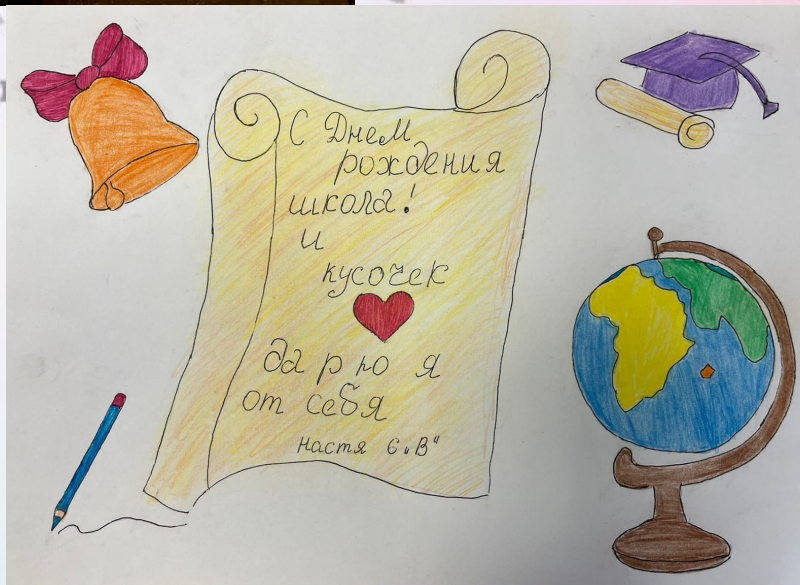 С Днем
рождения
школа!
и
кусочек
дарю я
от себя
Настя 6 „В"